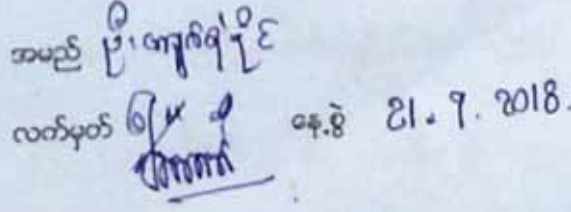 အမည် ဦးကျော်ရဲပိုင်
လက်မှတ် နေ့စွဲ 21.9.2018.